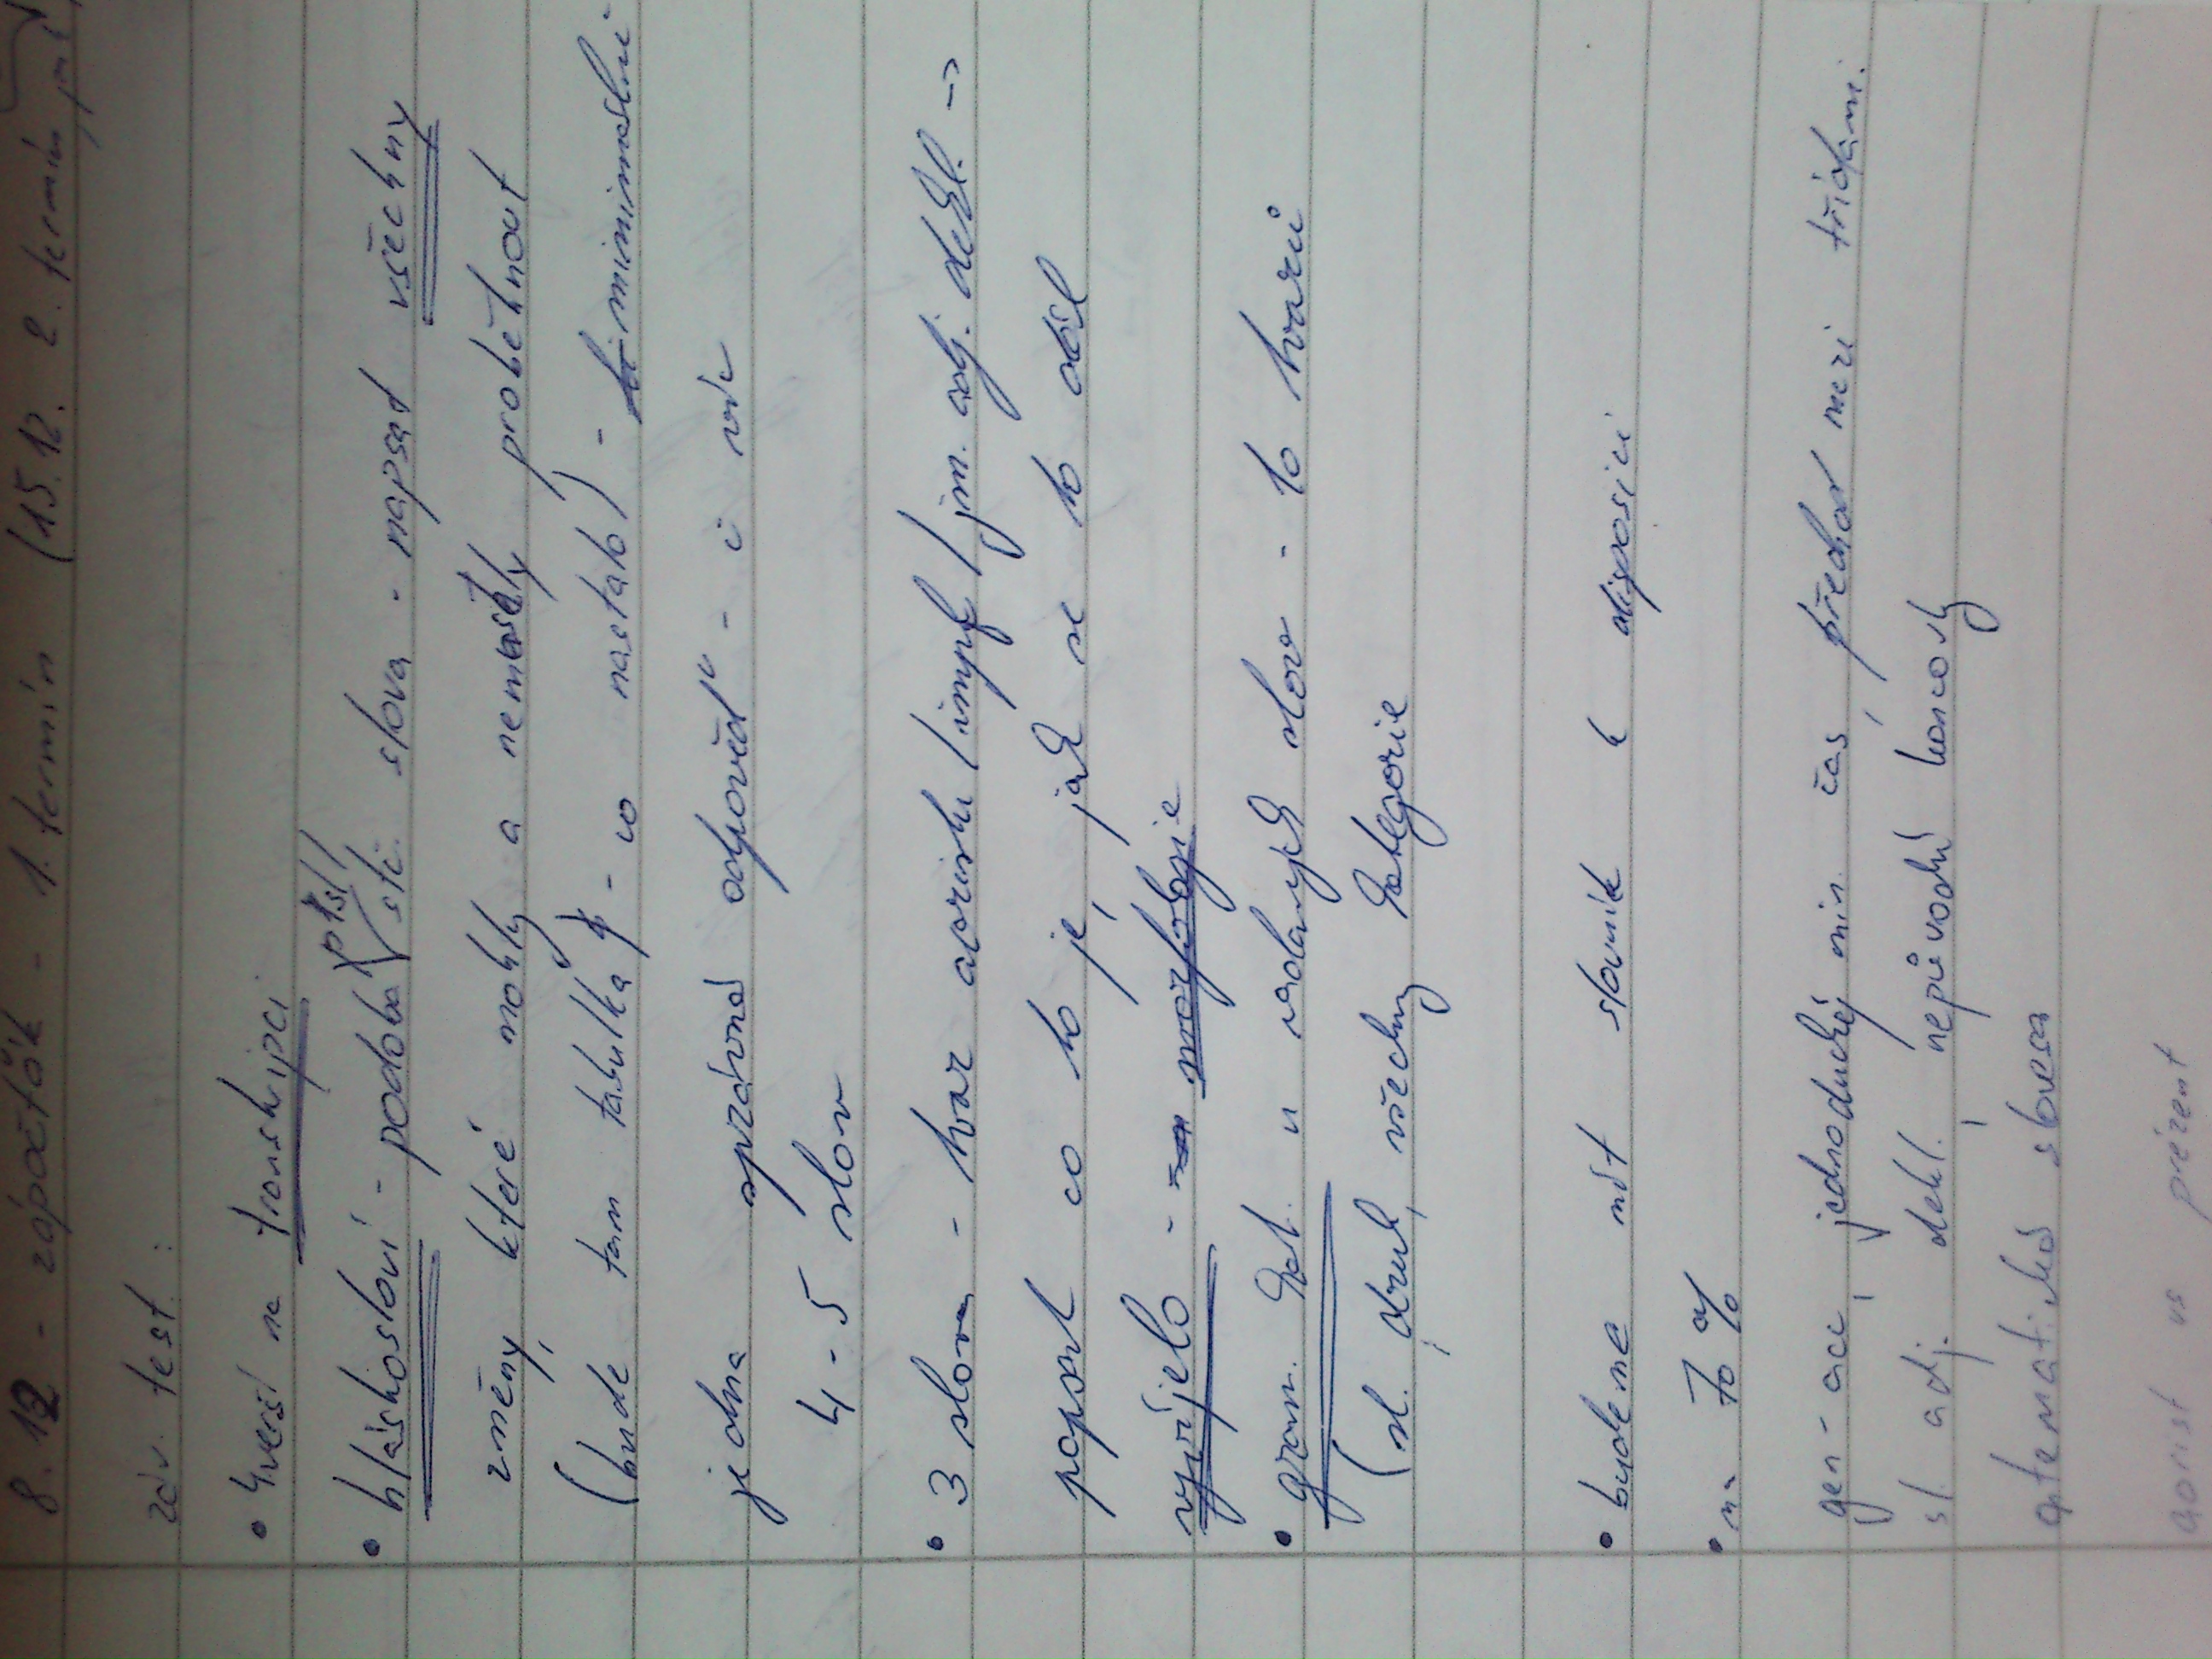 8. 12 - zápočťák - 1. termín (15. 12. 2. termín
záv. test:
• 4 verš na transkripci
• hláskosloví - podoba (psl/ stč. slova - napsat všechny
změny, které mohly a nemusely proběhnout
(bude tam tabulka - co nastalo) - minimálně
jedna správná odpověď" - i víc
4 - 5 slov
• 3 slova - tvar aoristu / impf / jm. adj. dekl. ->
popsat co to je, jak se to
vyvíjelo -
• gram. kat. u vydaných slov - 10 tvarů
(sl. druh, všechny kategorie
• budeme mít slovník k disposici
• na 70 %
gen - acc, jednoduchý min. čas, přechod mezi třídami.
sl. adj. dekl., nepůvodní koncovky
atematická slovesa
aorist vs prézent